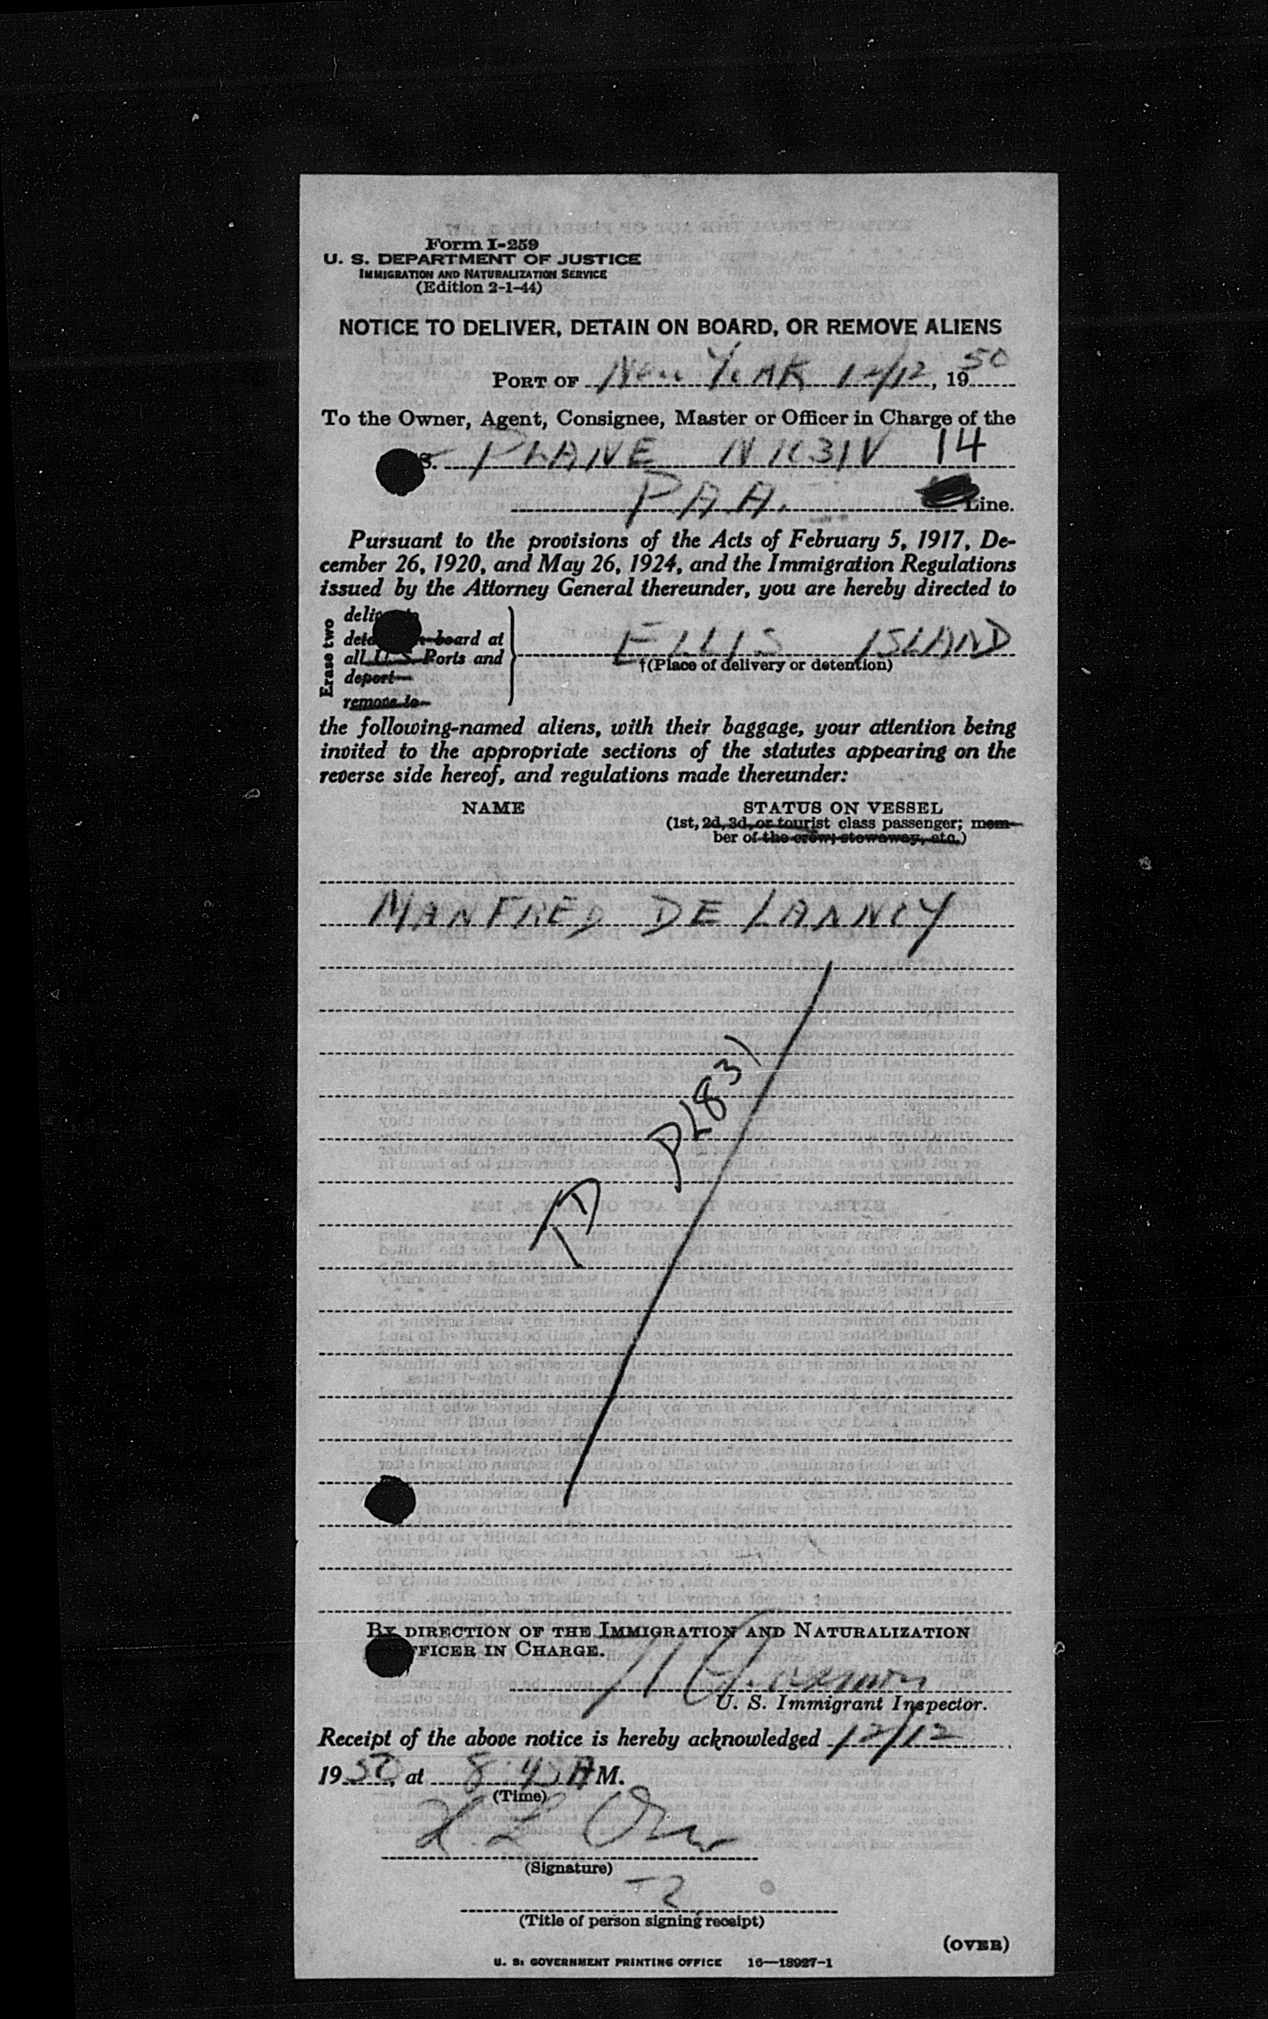 Form I-259
U. S. DEPARTMENT OF JUSTICE
IMMIGRATION AND NATURALIZATION SERVICE
(Edition 2-1-44)
NOTICE TO DELIVER, DETAIN ON BOARD, OR REMOVE ALIENS
PORT OF New YORK 12/12, 1950
To the Owner, Agent, Consignee, Master or Officer in Charge of the
S. PLANE N1031V 14
P.A.A. Line.
Pursuant to the provisions of the Acts of February 5, 1917, De-
cember 26, 1920, and May 26, 1924, and the Immigration Regulations
issued by the Attorney General thereunder, you are hereby directed to
Erase two
board at
all U. S. Ports and
deport
remove to
ELLIS ISLAND
†(Place of delivery or detention)
the following-named aliens, with their baggage, your attention being
invited to the appropriate sections of the statutes appearing on the
reverse side hereof, and regulations made thereunder:
NAME STATUS ON VESSEL
(1st, 2d, 3d, or tourist class passenger; mem-
ber of the crew; stowaway, etc.)
MANFRED DE LANNOY
TD PL831
BY DIRECTION OF THE IMMIGRATION AND NATURALIZATION
OFFICER IN CHARGE.
U. S. Immigrant Inspector.
Receipt of the above notice is hereby acknowledged 12/12
1950, at 8:45 AM.
(Time)
(Signature)
(Title of person signing receipt)
(OVER)
U. S. GOVERNMENT PRINTING OFFICE 16—18927-1